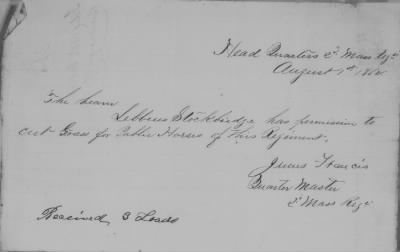 Head Quarters 2d Mass Regt
August 1st 186
The bearer
Lebbeus Stockbridge has permission to
cut Grass for Public Horses of this Regiment.
James Francis
Quarter Master
2d Mass Regt
Received 3 Loads